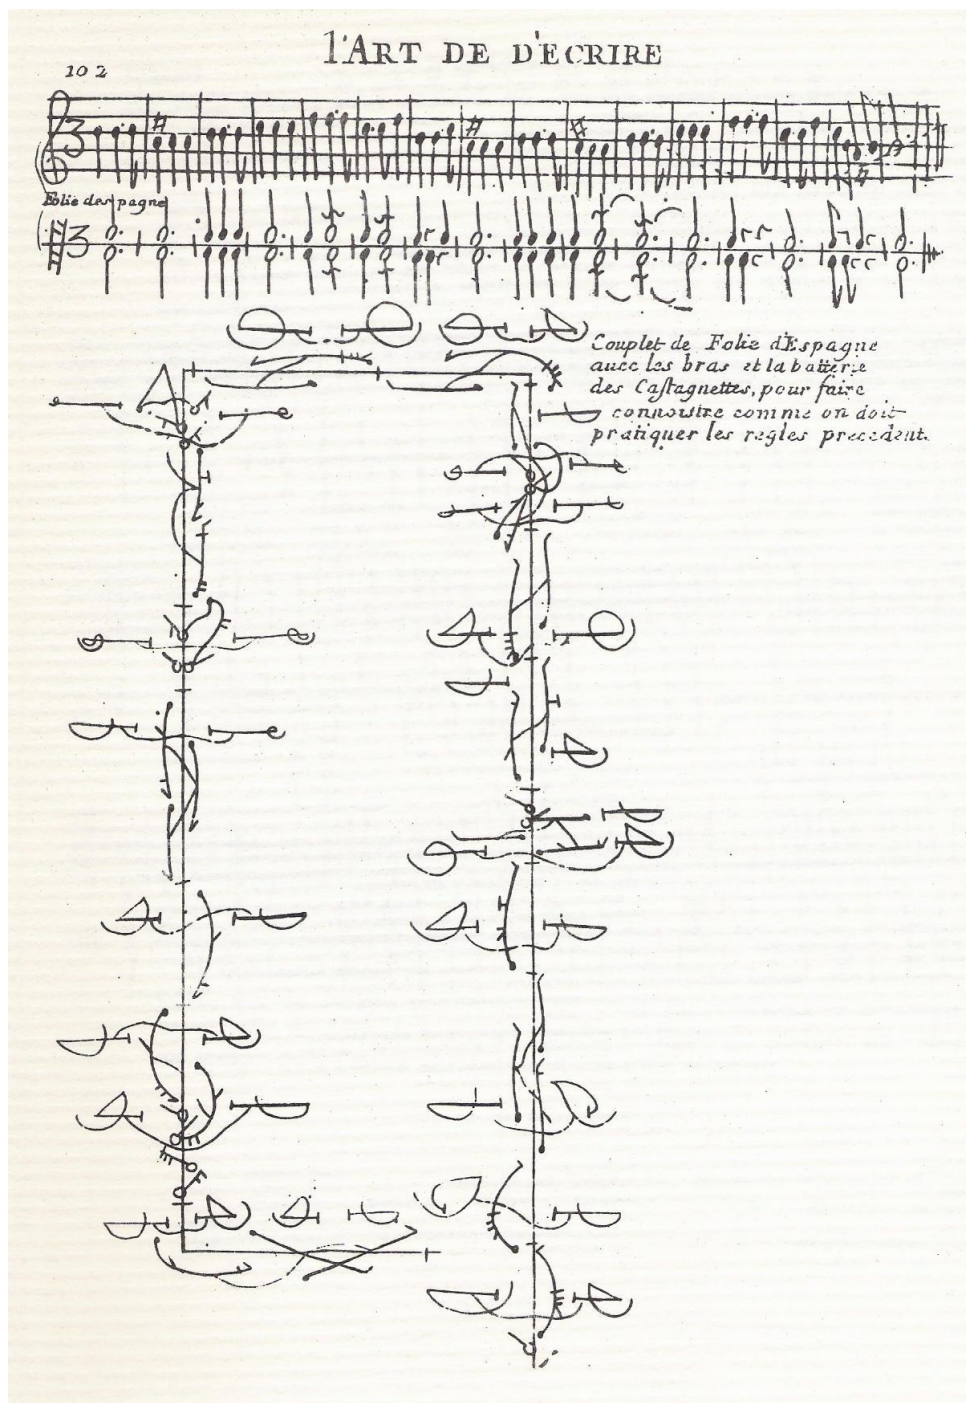 l'ART DE D'ECRIRE
102
3
Folie despagne
3
Couplet de Folie d'Espagne
auec les bras et la batterie
des Castagnettes, pour faire
connoistre comme on doit
pratiquer les regles precedent.